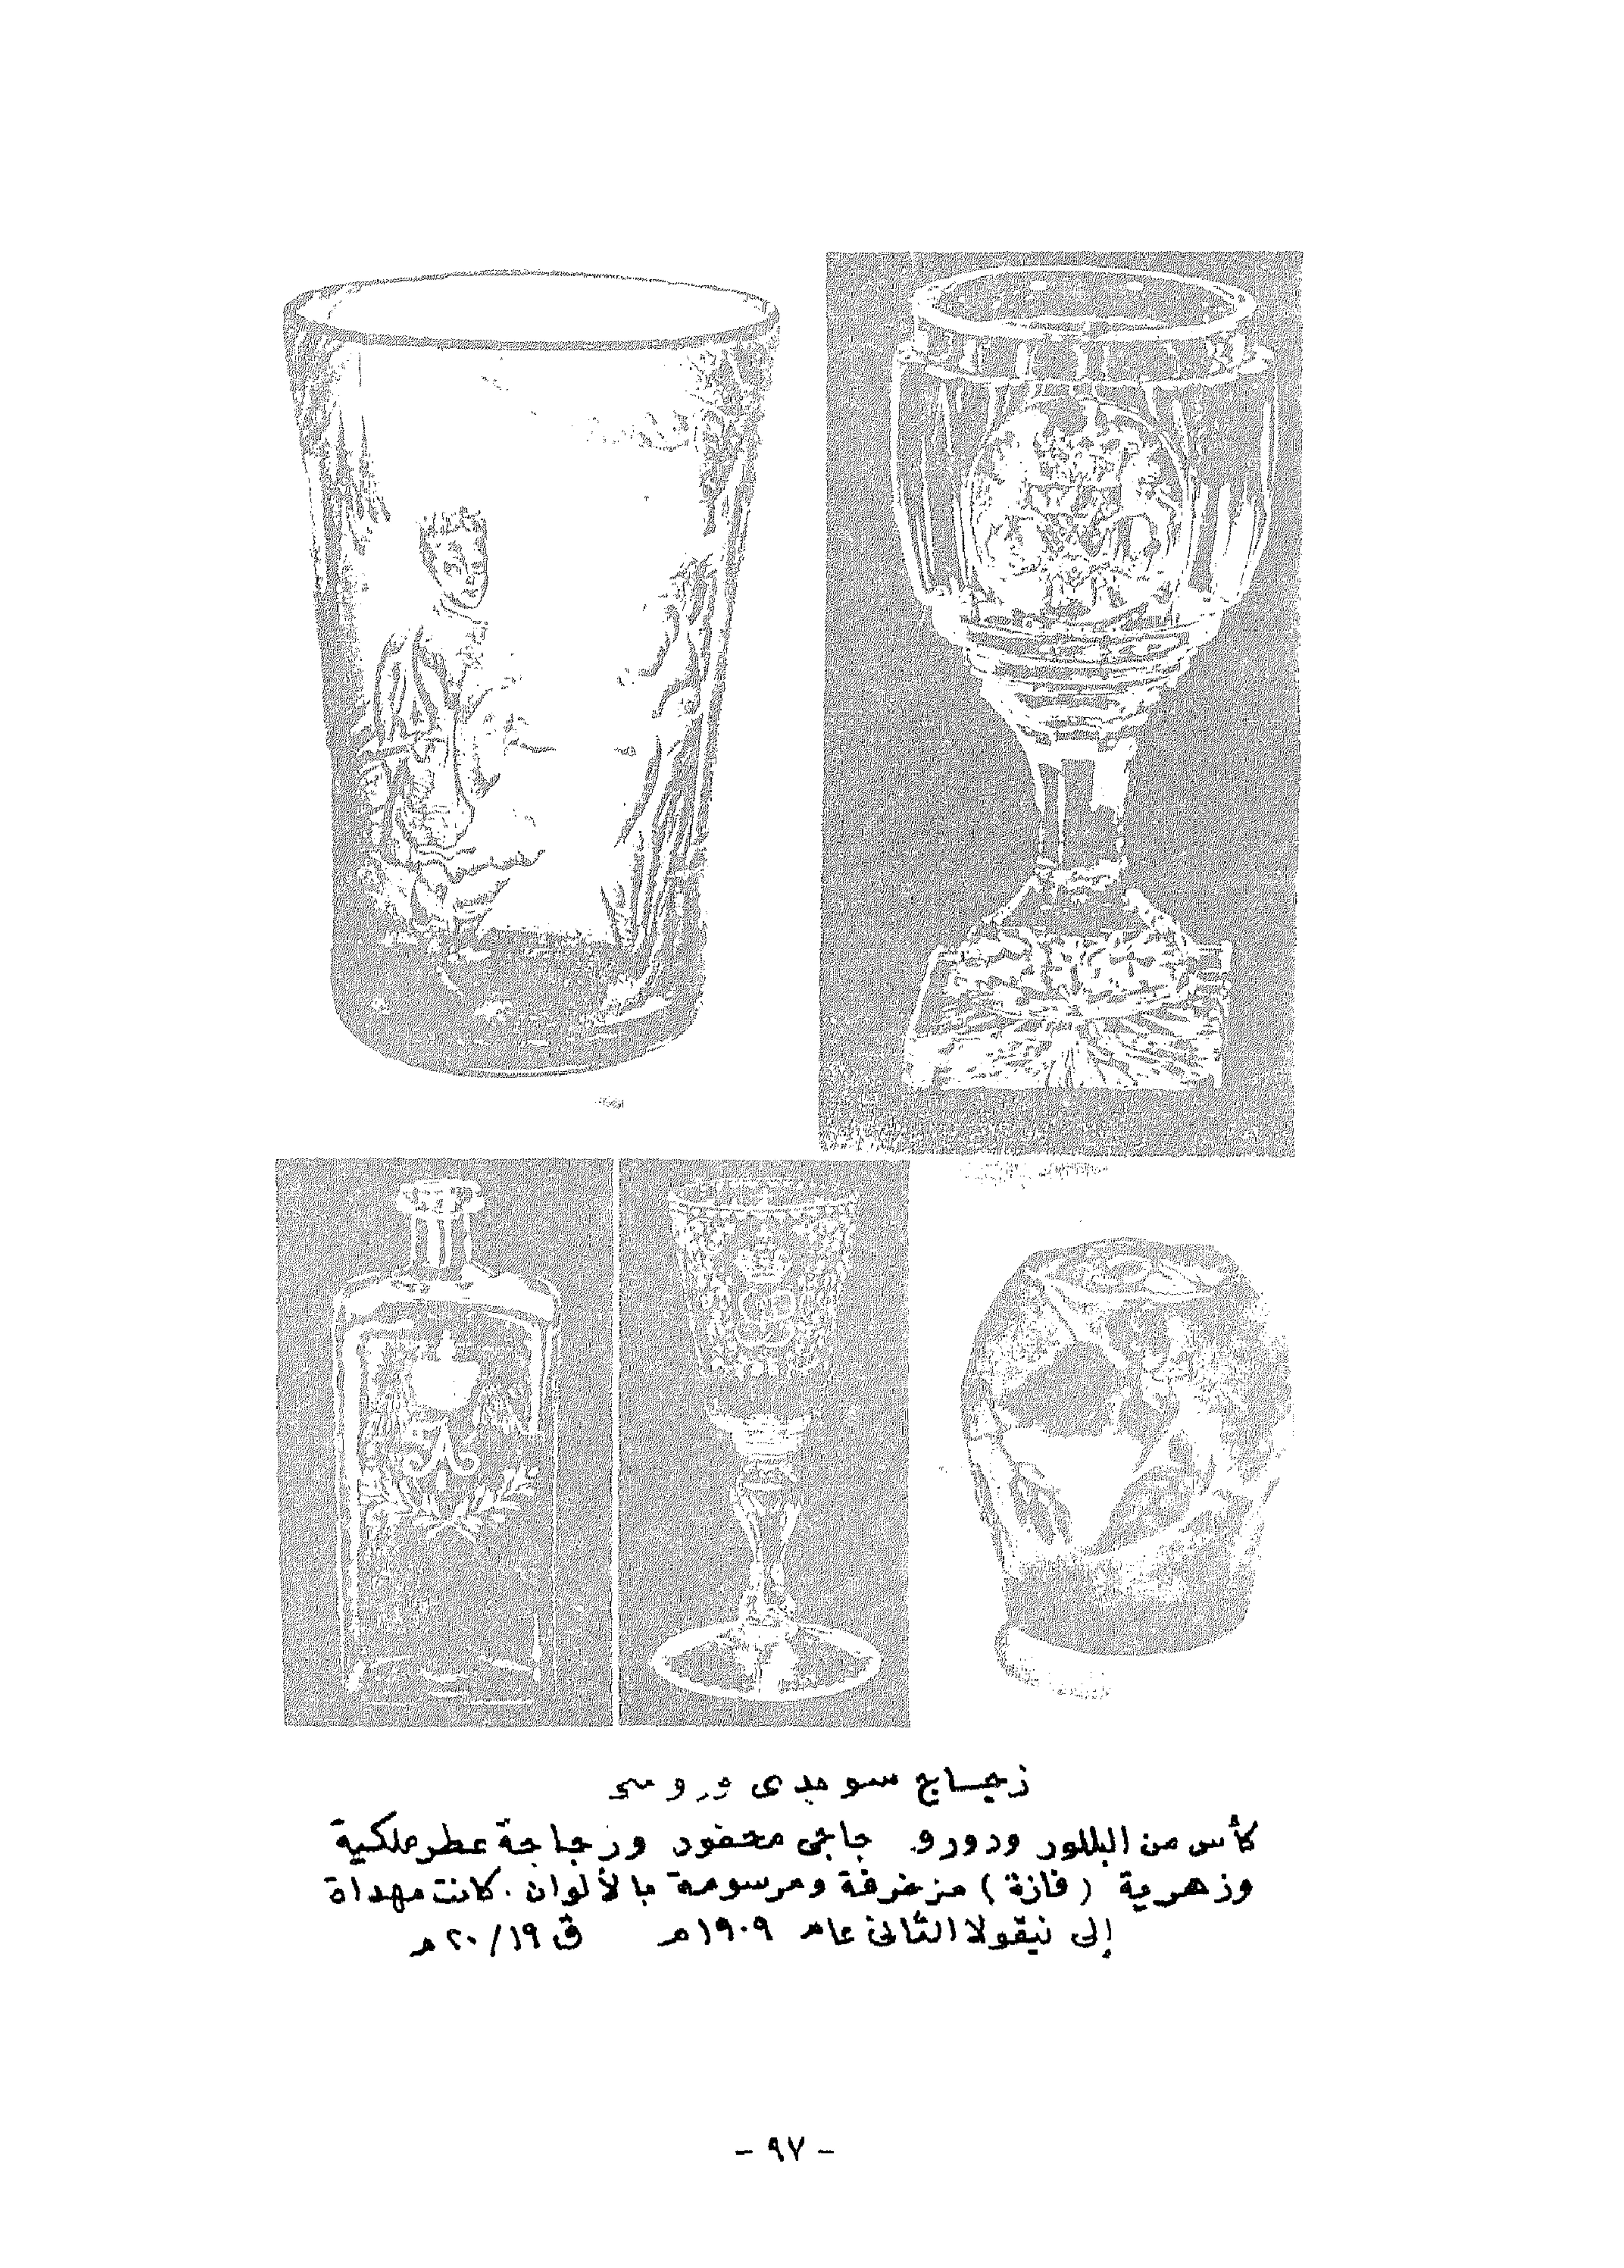 زجاج سويدى وروسى
كأس من البللور ودورق جاجى محفور وزجاجة عطر ملكية
وزهرية (فازة) مزخرفة ومرسومة بالألوان. كانت مهداة
إلى نيقولا الثانى عام ١٩٠٩م ق ٢٠/١٩م
- ٩٧ -